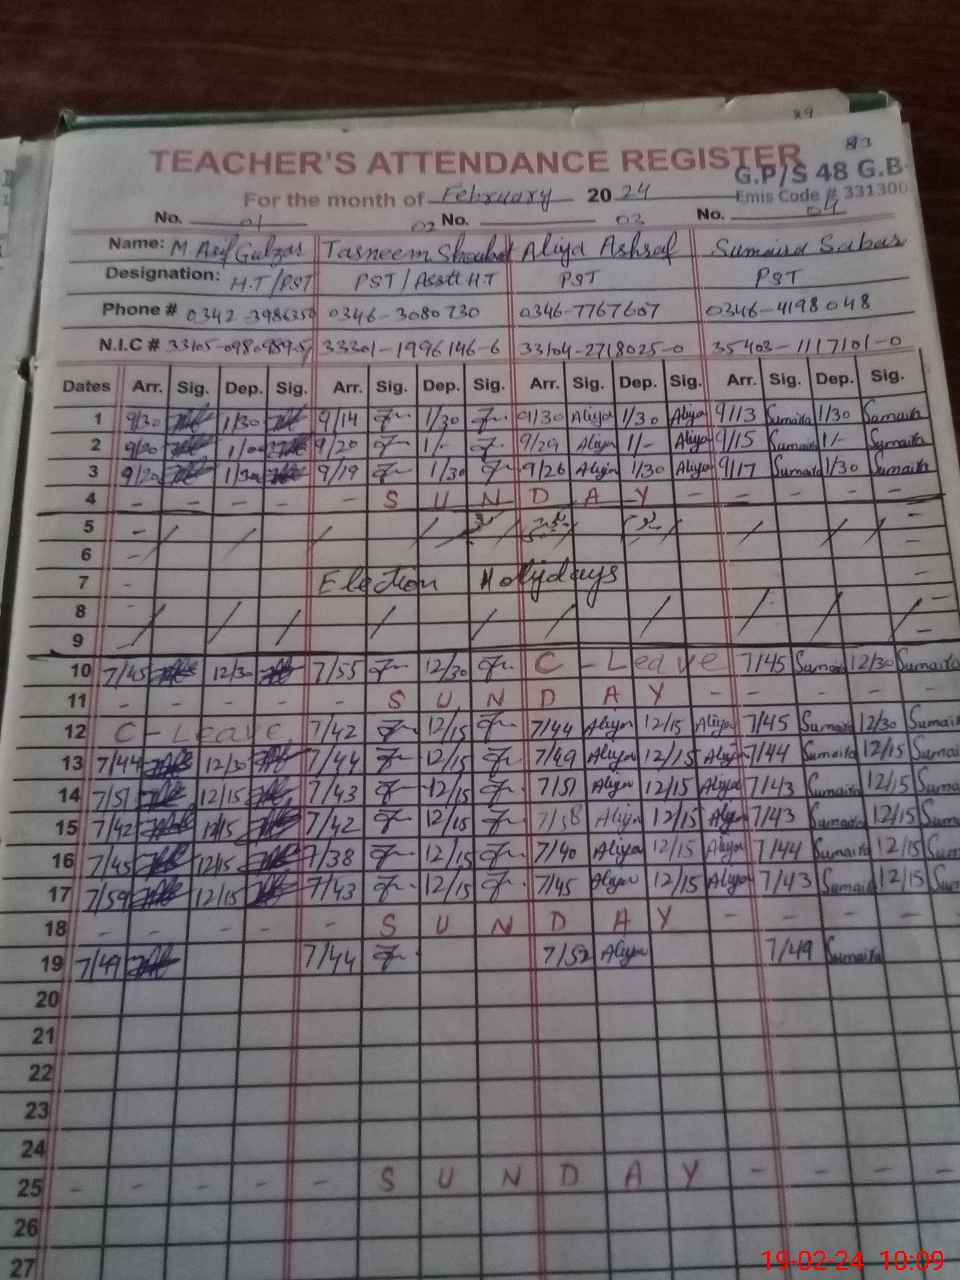 89
83
TEACHER'S ATTENDANCE REGISTER
G.P/S 48 G.B
For the month of February 2024 Emis Code # 331300
No. 01 02 No. 03 No. 04
Name: M. Asif Gulzar Tasneem Shoukat Aliya Ashraf Sumaira Sabar
Designation: H.T/PST PST/Asstt H.T PST PST
Phone # 0346-3080730 0346-7767607 0346-4198048
N.I.C # 33301-1996146-6 33104-2718025-0 35403-1117101-0
Dates Arr. Sig. Dep. Sig. Arr. Sig. Dep. Sig. Arr. Sig. Dep. Sig. Arr. Sig. Dep. Sig.
1 9/30 1/30 9/14 1/30 9/30 Aliya 1/30 Aliya 9/13 Sumaira 1/30 Sumaira
2 9/20 1/00 9/20 1/- 9/29 Aliya 1/- Aliya 9/15 Sumaira 1/- Sumaira
3 9/20 1/30 9/19 1/30 9/26 Aliya 1/30 Aliya 9/17 Sumaira 1/30 Sumaira
4 - - - - - S U N D A Y - - - - -
5
6
7 Election Holydays
8
9
10 7/45 12/30 7/55 12/30 C-Leave 7/45 Sumaira 12/30 Sumaira
11 - - - - - S U N D A Y - - - - -
12 C-Leave 7/42 12/15 7/44 Aliya 12/15 Aliya 7/45 Sumaira 12/30 Sumai
13 7/44 12/30 7/44 12/15 7/49 Aliya 12/15 Aliya 7/44 Sumaira 12/15 Suma
14 7/51 12/15 7/43 12/15 7/51 Aliya 12/15 Aliya 7/43 Sumaira 12/15 Suma
15 7/42 12/15 7/42 12/15 7/58 Aliya 12/15 Aliya 7/43 Sumaira 12/15 Suma
16 7/45 12/15 7/38 12/15 7/40 Aliya 12/15 Aliya 7/44 Sumaira 12/15 Sum
17 7/59 12/15 7/43 12/15 7/45 Aliya 12/15 Aliya 7/43 Sumaira 12/15 Sum
18 - - - - - S U N D A Y - - - - -
19 7/49 7/44 7/52 Aliya 7/49 Sumaira
20
21
22
23
24
25 - - - - - S U N D A Y - - - - -
26
27
19-02-24 10:09